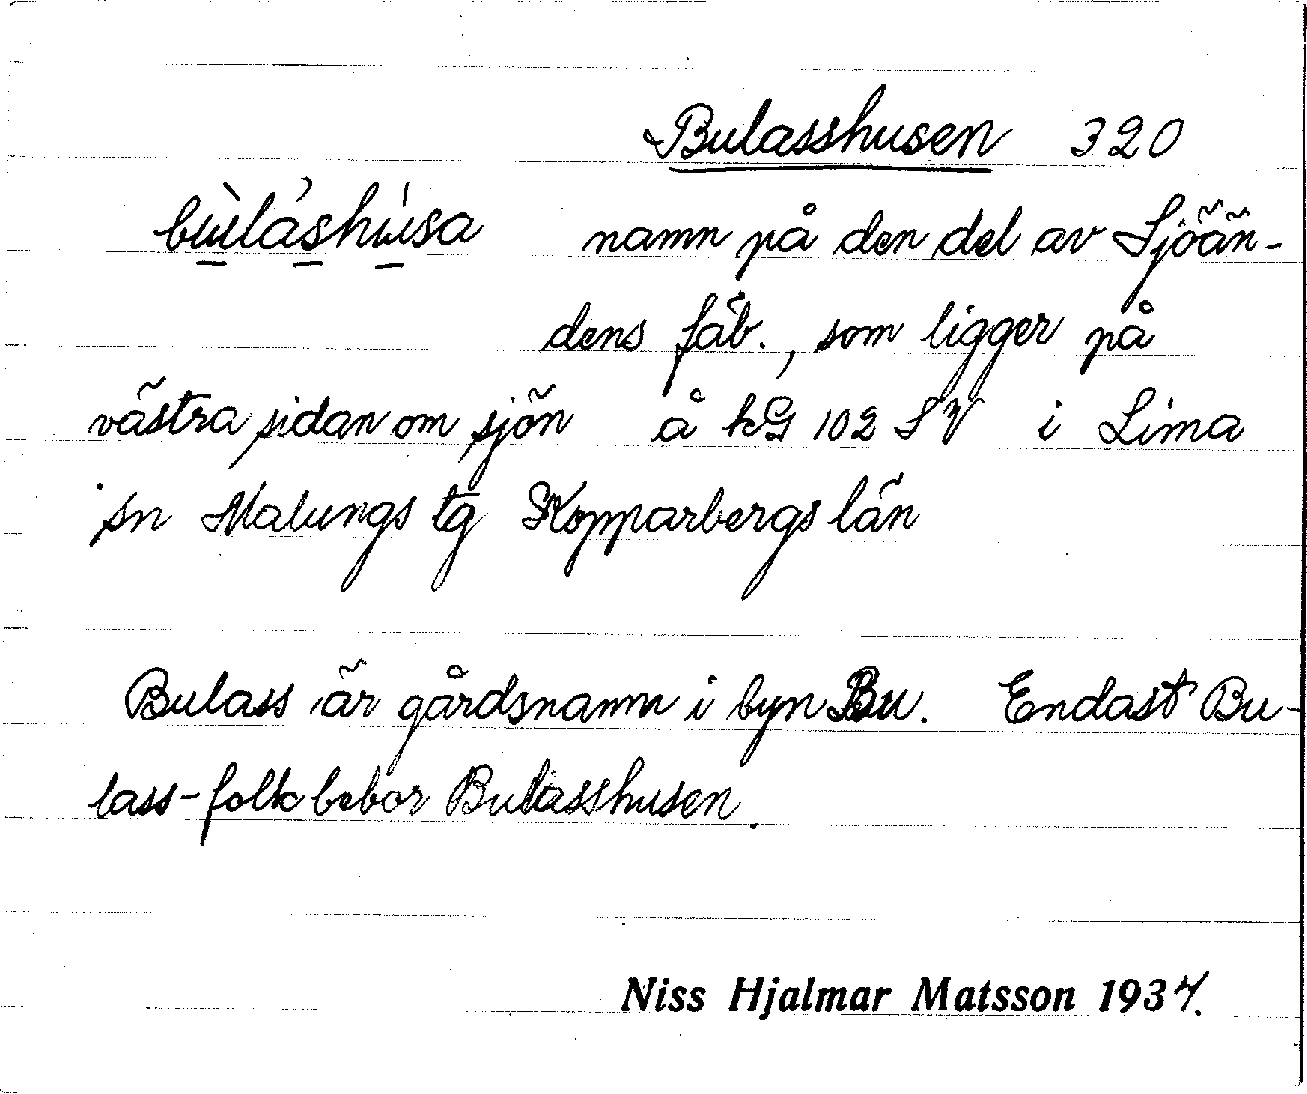 Bulasshusen 320
bùláshúsa namn på den del av Sjöän-
dens fäb., som ligger på
västra sidan om sjön å kG 102 SV i Lima
sn Malungs tg Kopparbergs län
Bulass är gårdsnamn i byn Bu. Endast Bu-
lass-folk bebor Bulasshusen.
Niss Hjalmar Matsson 1937.